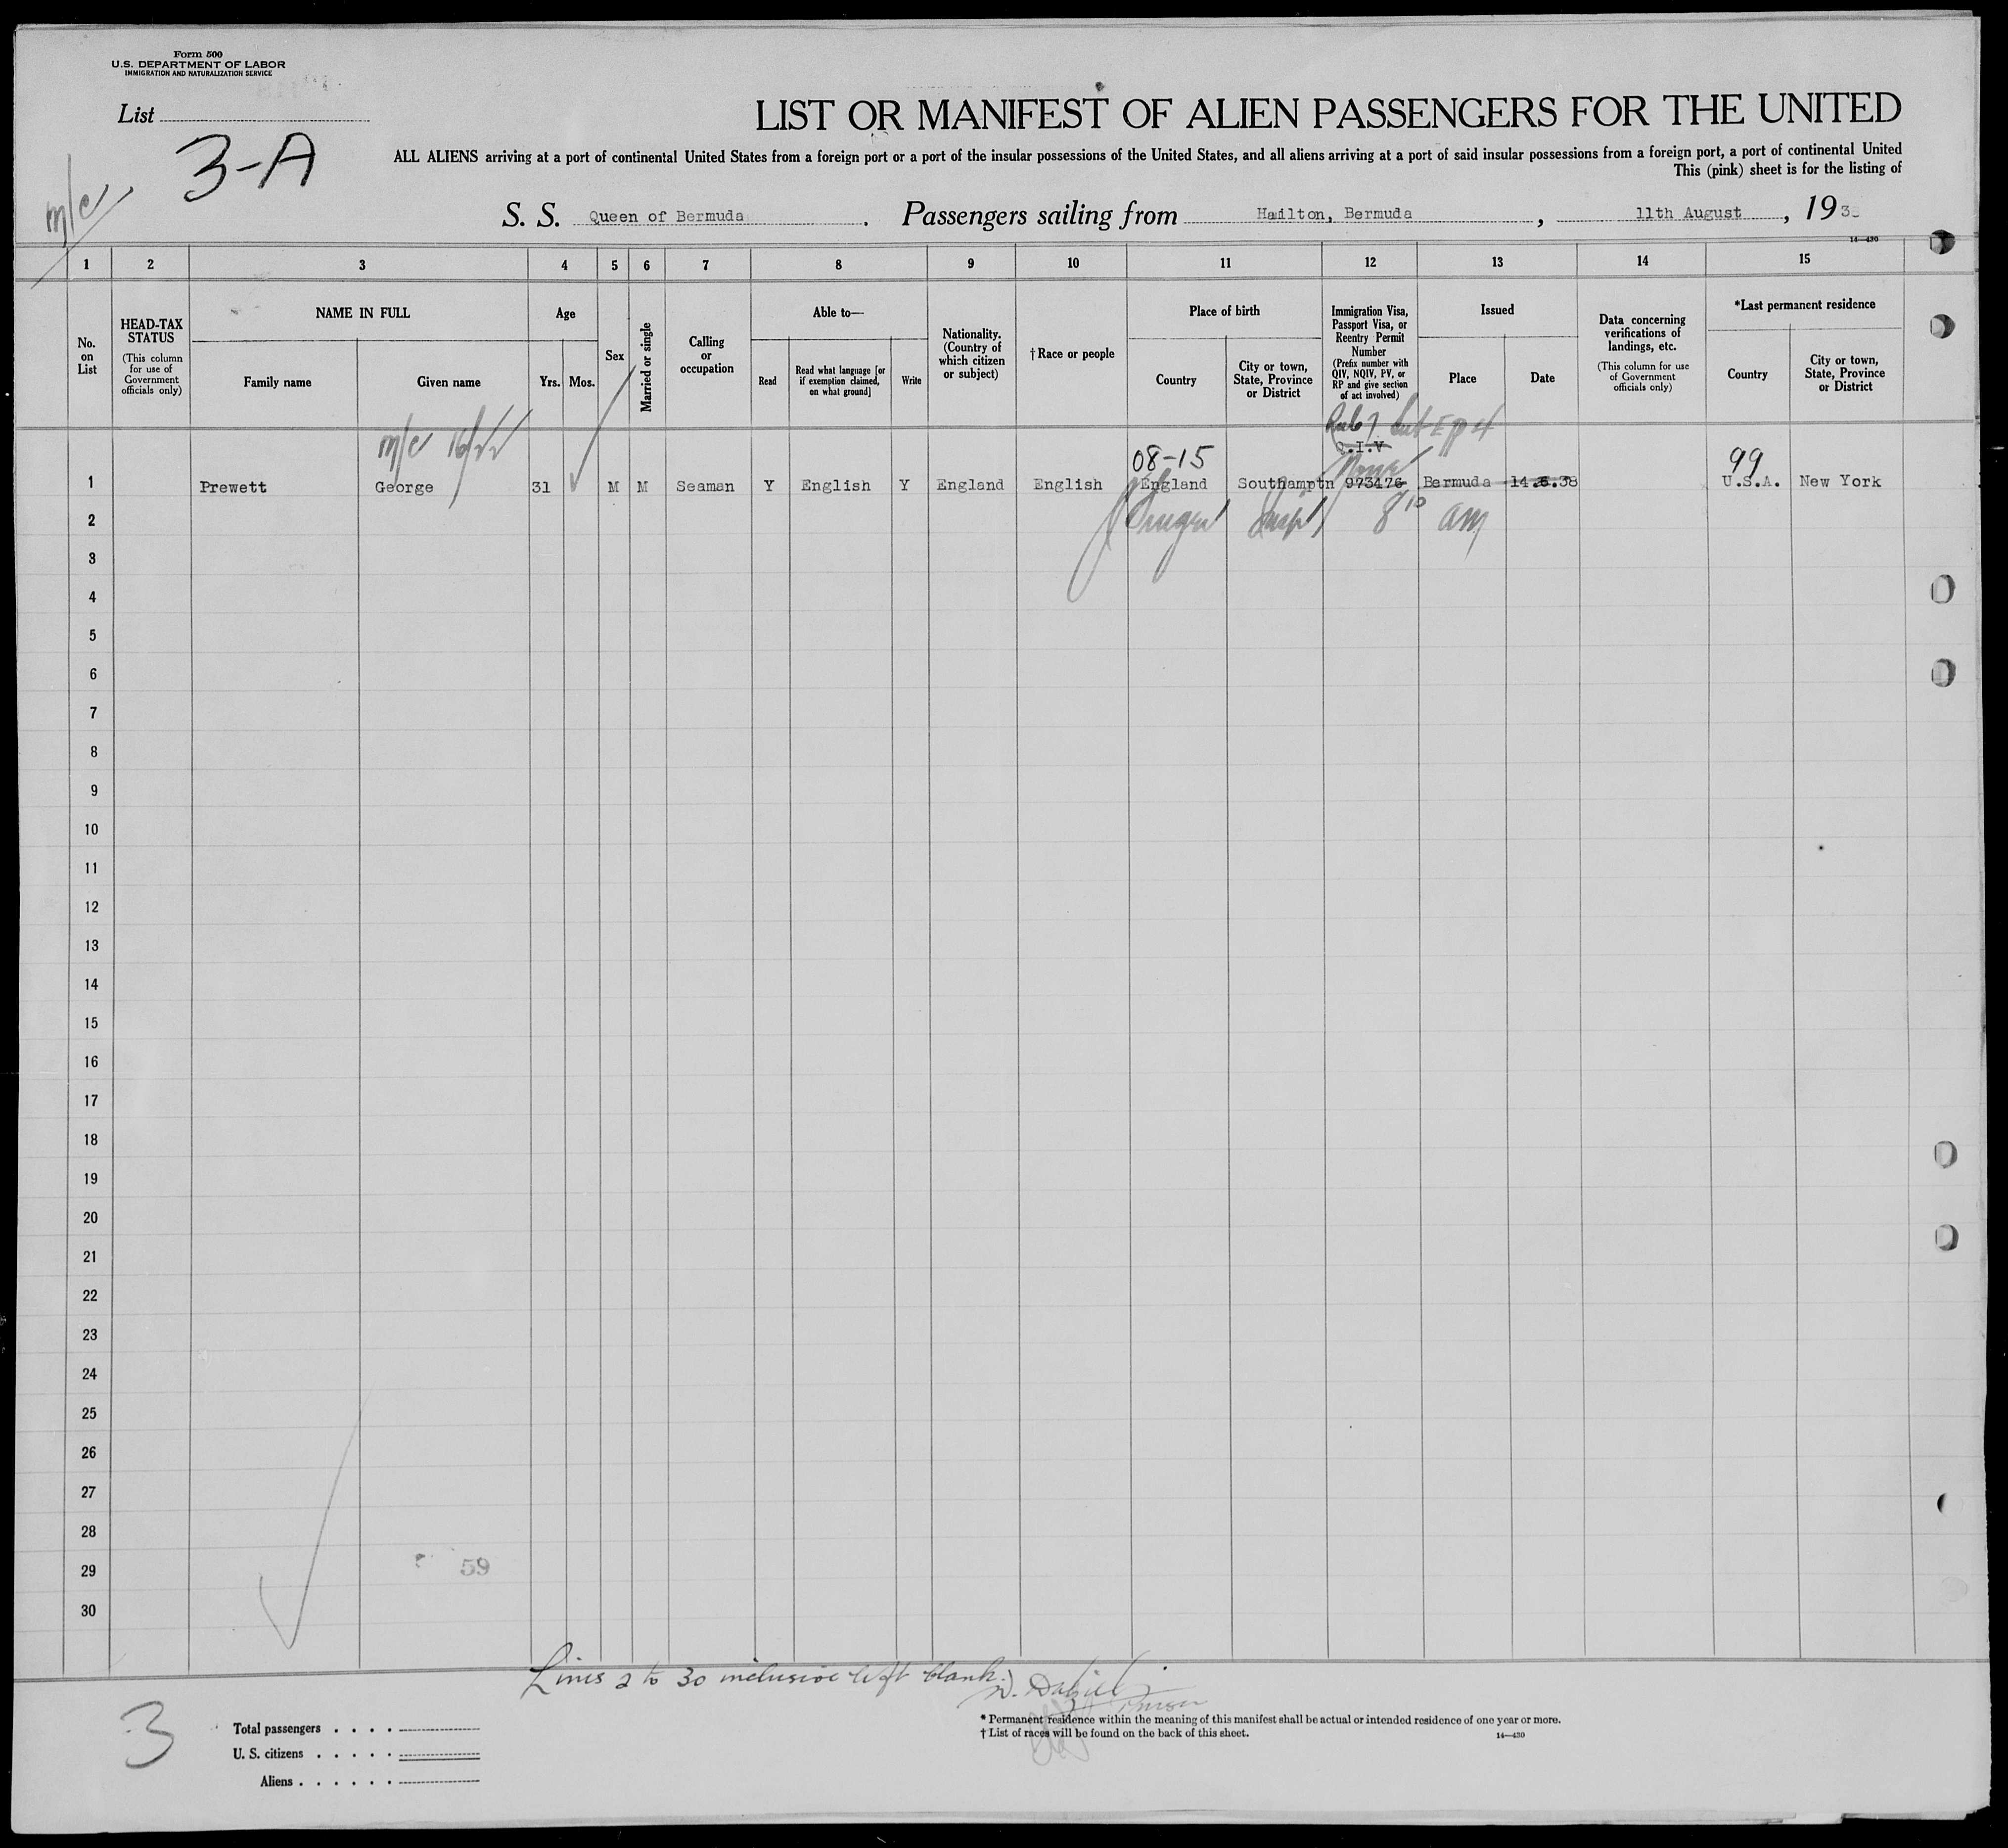 Form 500
U.S. DEPARTMENT OF LABOR
IMMIGRATION AND NATURALIZATION SERVICE
List
3-A
m/c
LIST OR MANIFEST OF ALIEN PASSENGERS FOR THE UNITED
ALL ALIENS arriving at a port of continental United States from a foreign port or a port of the insular possessions of the United States, and all aliens arriving at a port of said insular possessions from a foreign port, a port of continental United
This (pink) sheet is for the listing of
S. S. Queen of Bermuda. Passengers sailing from Hamilton, Bermuda, 11th August, 193
14—430
1 2 3 4 5 6 7 8 9 10 11 12 13 14 15
No. on List
HEAD-TAX STATUS (This column for use of Government officials only)
NAME IN FULL
Family name
Given name
Age
Yrs.
Mos.
Sex
Married or single
Calling or occupation
Able to—
Read
Read what language [or if exemption claimed, on what ground]
Write
Nationality. (Country of which citizen or subject)
†Race or people
Place of birth
Country
City or town, State, Province or District
Immigration Visa, Passport Visa, or Reentry Permit Number (Prefix number with QIV, NQIV, PV, or RP and give section of act involved)
Issued
Place
Date
Data concerning verifications of landings, etc. (This column for use of Government officials only)
*Last permanent residence
Country
City or town, State, Province or District
m/c
08-15
Q.I.V
99
1 Prewett George 31 M M Seaman Y English Y England English England Southamptn 973476 Bermuda 14.5.38 U.S.A. New York
2 8 10 am
3
4
5
6
7
8
9
10
11
12
13
14
15
16
17
18
19
20
21
22
23
24
25
26
27
28
29
59
30
Lines 2 to 30 inclusive left blank.
Purser
3
Total passengers
U. S. citizens
Aliens
* Permanent residence within the meaning of this manifest shall be actual or intended residence of one year or more.
† List of races will be found on the back of this sheet.
14—430